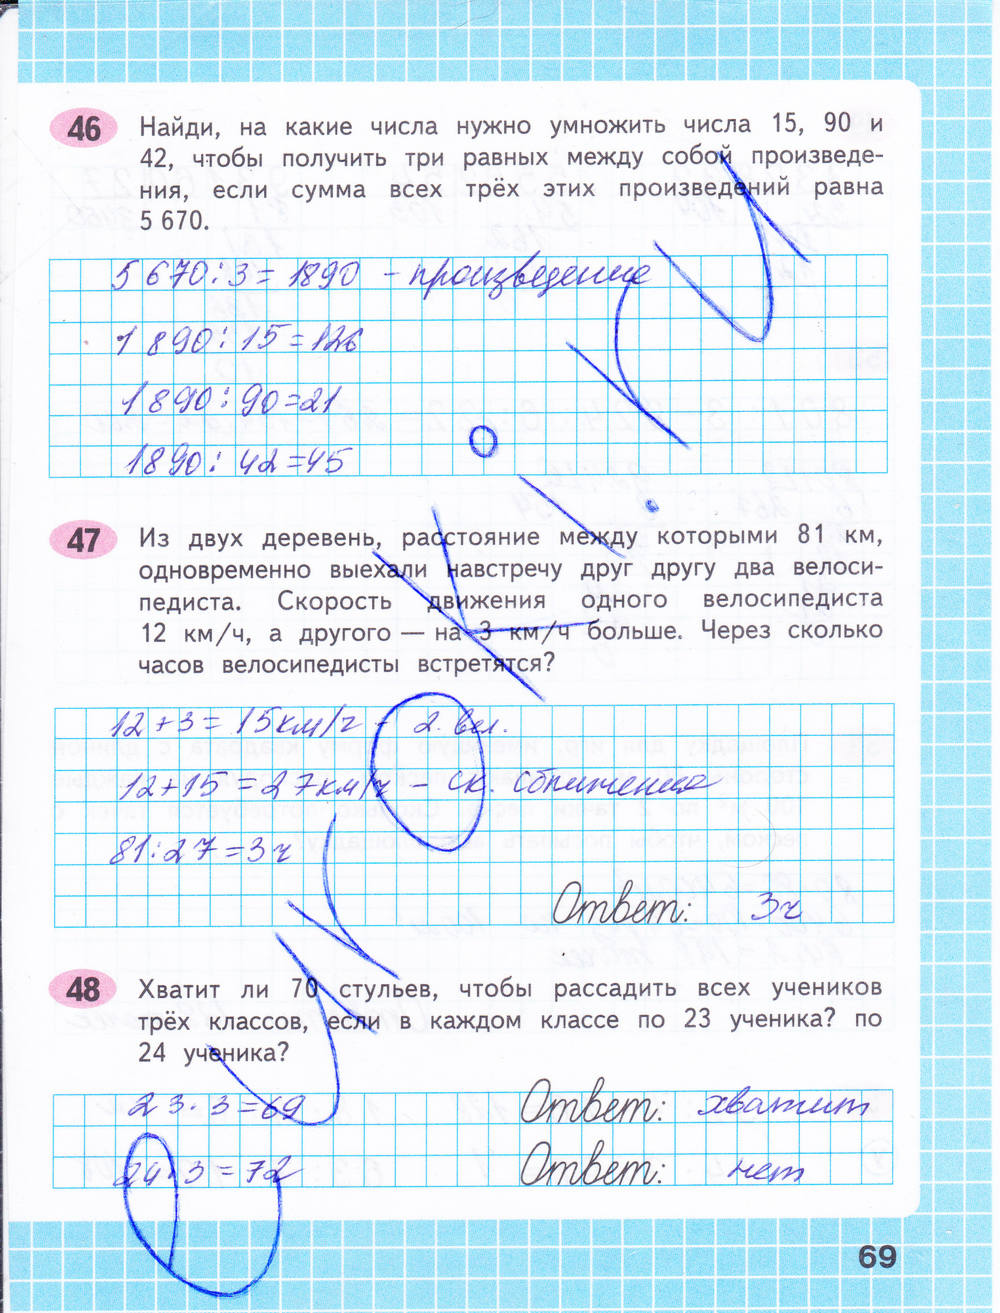 46 Найди, на какие числа нужно умножить числа 15, 90 и
42, чтобы получить три равных между собой произведе-
ния, если сумма всех трёх этих произведений равна
5 670.
5 670:3= 1890 - произведение
1 890:15=126
1890:90=21
1890:42=45
47 Из двух деревень, расстояние между которыми 81 км,
одновременно выехали навстречу друг другу два велоси-
педиста. Скорость движения одного велосипедиста
12 км/ч, а другого — на 3 км/ч больше. Через сколько
часов велосипедисты встретятся?
12+3= 15км/ч - 2. вел.
12+15=27км/ч - ск. сближения
81:27=3ч
Ответ: 3ч
48 Хватит ли 70 стульев, чтобы рассадить всех учеников
трёх классов, если в каждом классе по 23 ученика? по
24 ученика?
23·3=69 Ответ: хватит
24·3=72 Ответ: нет
69